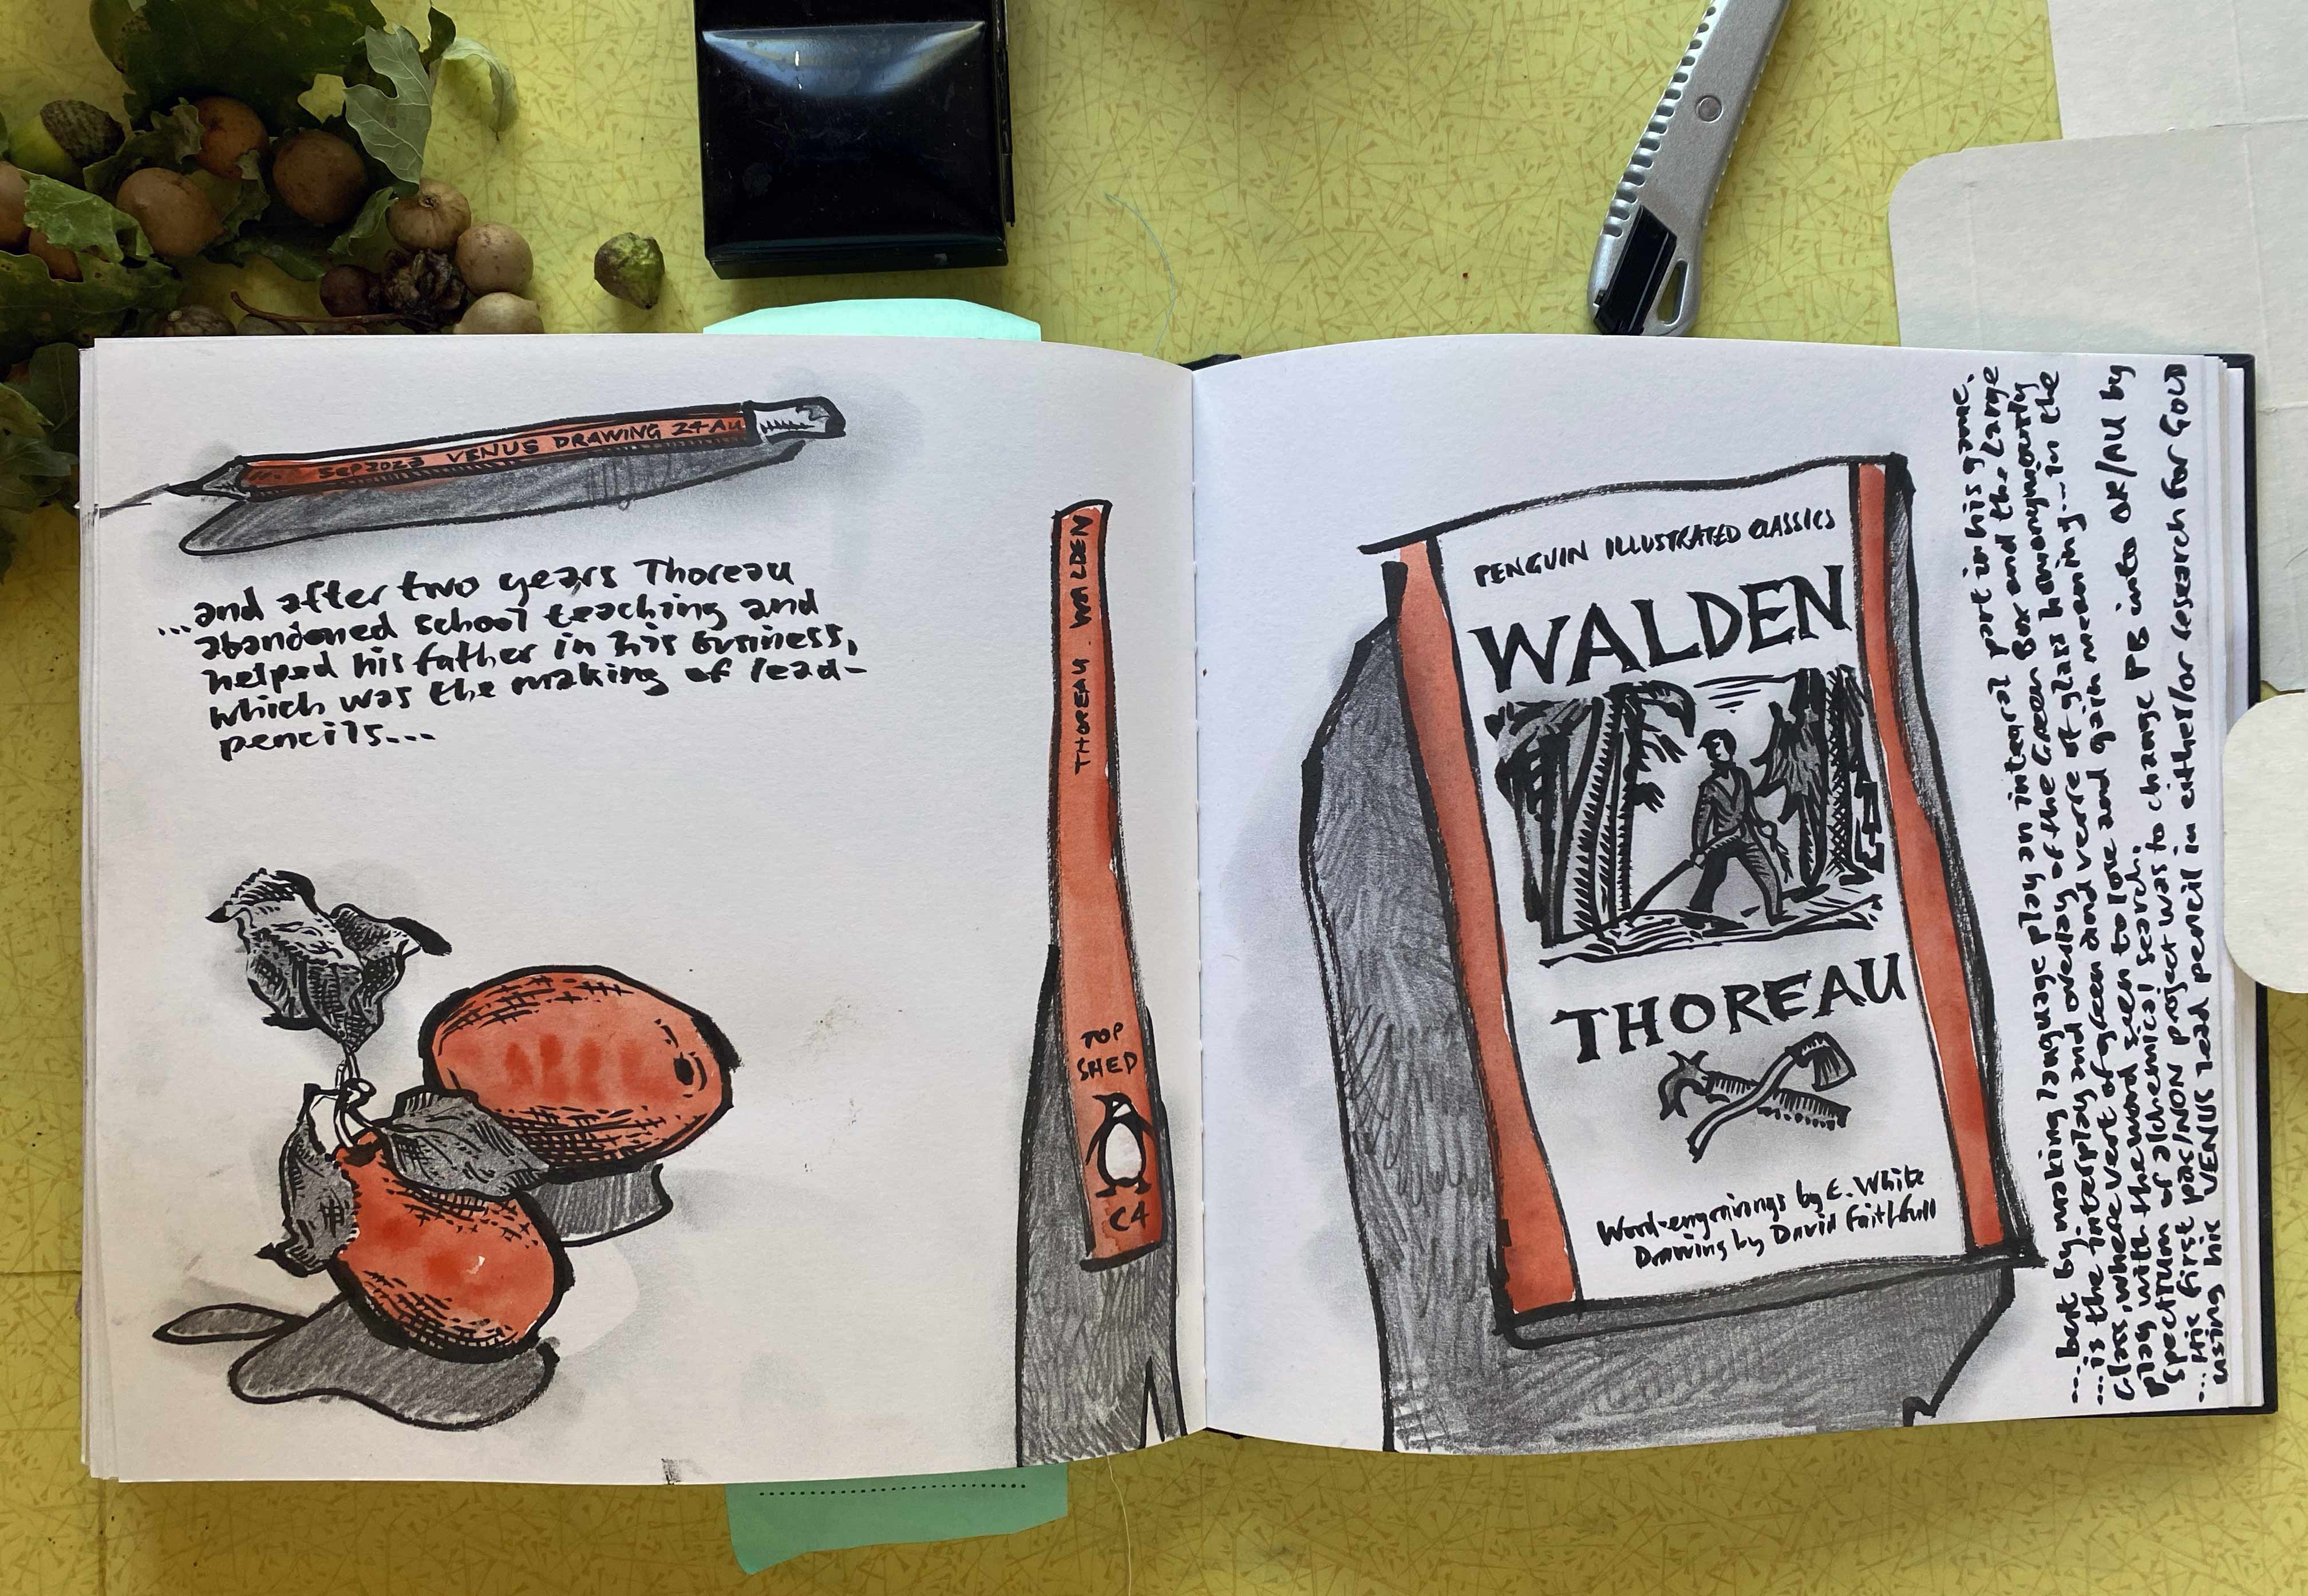 SEP 2023 VENUS DRAWING 24 AU
...and after two years Thoreau
abandoned school teaching and
helped his father in his business,
which was the making of lead-
pencils...
THOREAU . WALDEN
TOP
SHED
C4
PENGUIN ILLUSTRATED CLASSICS
WALDEN
THOREAU
Wood-engravings by E. White
Drawing by David Faithfull
...best by making language play an integral part in his game.
...is the interplay and overlay of the Green Box and the Large
Glass, where vert of green and verre of glass homonymously
play with the word seen to lose and gain meaning...in the
spectrum of alchemical search.
...His first pac/NON project was to change PB into OR/AU by
using his VENUS lead pencil in either/or research for GOLD